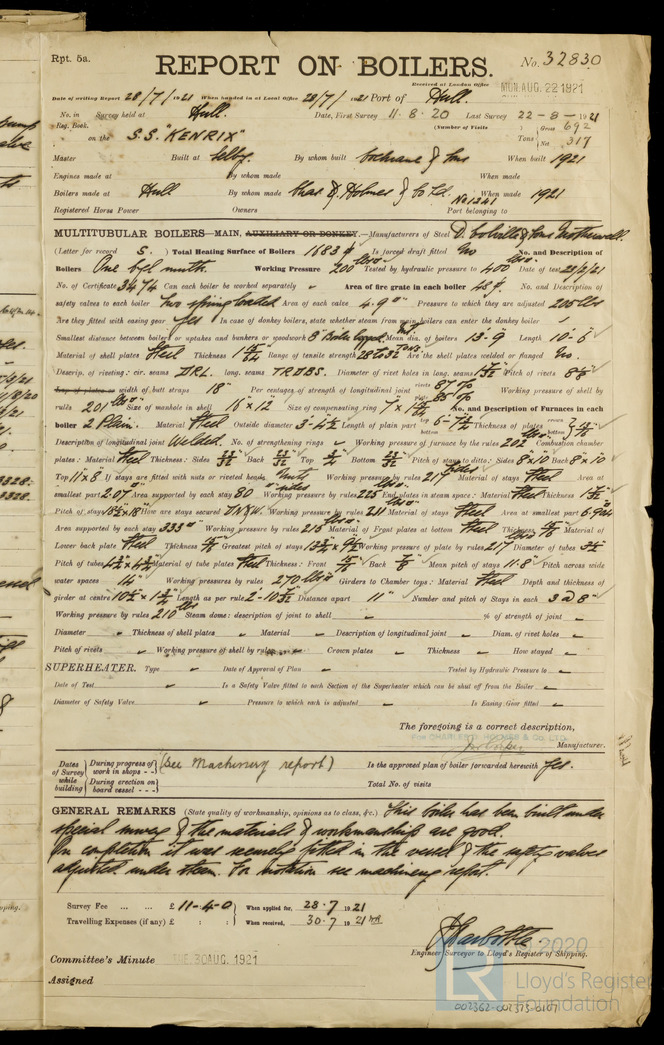 Rpt. 5a.
REPORT ON BOILERS.
No. 32830
Received at London Office MON. AUG. 22 1921
Date of writing Report 28/7/1921 When handed in at Local Office 28/7/1921 Port of Hull.
No. in Reg. Book. Survey held at Hull. Date, First Survey 11.8.20 Last Survey 22-8-1921
on the S.S. "KENRIX" (Number of Visits ) Tons { Gross 692 Net 317
Master Built at Selby By whom built Cochrane & Sons When built 1921
Engines made at By whom made When made
Boilers made at Hull By whom made Chas D. Holmes & Co Ltd. No 1241 When made 1921
Registered Horse Power Owners Port belonging to
MULTITUBULAR BOILERS—MAIN, AUXILIARY OR DONKEY.—Manufacturers of Steel D. Colville & Sons Motherwell.
(Letter for record S. ) Total Heating Surface of Boilers 1683 Is forced draft fitted No No. and Description of
Boilers One Working Pressure 200 lbs Tested by hydraulic pressure to 400 lbs Date of test 23/2/21
No. of Certificate 3474 Can each boiler be worked separately Area of fire grate in each boiler 48 No. and Description of
safety valves to each boiler Two spring loaded Area of each valve 4.9 Pressure to which they are adjusted 205 lbs
Are they fitted with easing gear Yes In case of donkey boilers, state whether steam from main boilers can enter the donkey boiler
Smallest distance between boilers or uptakes and bunkers or woodwork 8" Boiler lagged Int. Mean dia. of boilers 13-9 Length 10-6
Material of shell plates Steel Thickness Range of tensile strength 28 to 32 Tons Are the shell plates welded or flanged No.
Descrip. of riveting: cir. seams D.R.L. long. seams T.R.D.B.S. Diameter of rivet holes in long. seams Pitch of rivets
Lap of plates or width of butt straps 18" Per centages of strength of longitudinal joint rivets 87 % plate 85 % Working pressure of shell by
rules 201 lbs Size of manhole in shell 16 x 12 Size of compensating ring No. and Description of Furnaces in each
boiler 2 Plain. Material Steel Outside diameter Length of plain part top bottom Thickness of plates crown bottom
Description of longitudinal joint Welded. No. of strengthening rings Working pressure of furnace by the rules 202 Combustion chamber
plates: Material Steel Thickness: Sides Back Top Bottom Pitch of stays to ditto: Sides 8" x 10 Back 8" x 10
Top 11 x 8 If stays are fitted with nuts or riveted heads Nuts Working pressure by rules 217 Material of stays Steel Area at
smallest part 2.07 Area supported by each stay 80 Working pressure by rules 225 End plates in steam space: Material Steel Thickness
Pitch of stays How are stays secured D.N.&W. Working pressure by rules 211 Material of stays Steel Area at smallest part
Area supported by each stay 333 Working pressure by rules 215 Material of Front plates at bottom Steel Thickness Material of
Lower back plate Steel Thickness Greatest pitch of stays Working pressure of plate by rules 217 Diameter of tubes
Pitch of tubes Material of tube plates Steel Thickness: Front Back Mean pitch of stays 11.8 Pitch across wide
water spaces 14" Working pressures by rules 270 lbs Girders to Chamber tops: Material Steel Depth and thickness of
girder at centre Length as per rule Distance apart 11" Number and pitch of Stays in each 3 @ 8"
Working pressure by rules 210 lbs Steam dome: description of joint to shell % of strength of joint
Diameter Thickness of shell plates Material Description of longitudinal joint Diam. of rivet holes
Pitch of rivets Working pressure of shell by rules Crown plates Thickness How stayed
SUPERHEATER. Type Date of Approval of Plan Tested by Hydraulic Pressure to
Date of Test Is a Safety Valve fitted to each Section of the Superheater which can be shut off from the Boiler
Diameter of Safety Valve Pressure to which each is adjusted Is Easing Gear fitted
The foregoing is a correct description,
FOR CHARLES D. HOLMES & Co. LTD.
Manufacturer.
Dates of Survey while building { During progress of work in shops - - During erection on board vessel - - - (See Machinery report) Is the approved plan of boiler forwarded herewith Yes.
Total No. of visits
GENERAL REMARKS (State quality of workmanship, opinions as to class, &c.) This boiler has been built under
special survey & the materials & workmanship are good.
On completion it was securely fitted in the vessel & the safety valves
adjusted under steam. For notation see machinery report.
Survey Fee ... ... £ 11-4-0 When applied for, 28.7.1921
Travelling Expenses (if any) £ : : When received, 30.7.1921
Engineer Surveyor to Lloyd's Register of Shipping.
Committee's Minute TUE. 30 AUG. 1921
Assigned
© 2020
LR
Lloyd's Register
Foundation
002362-002373-0107